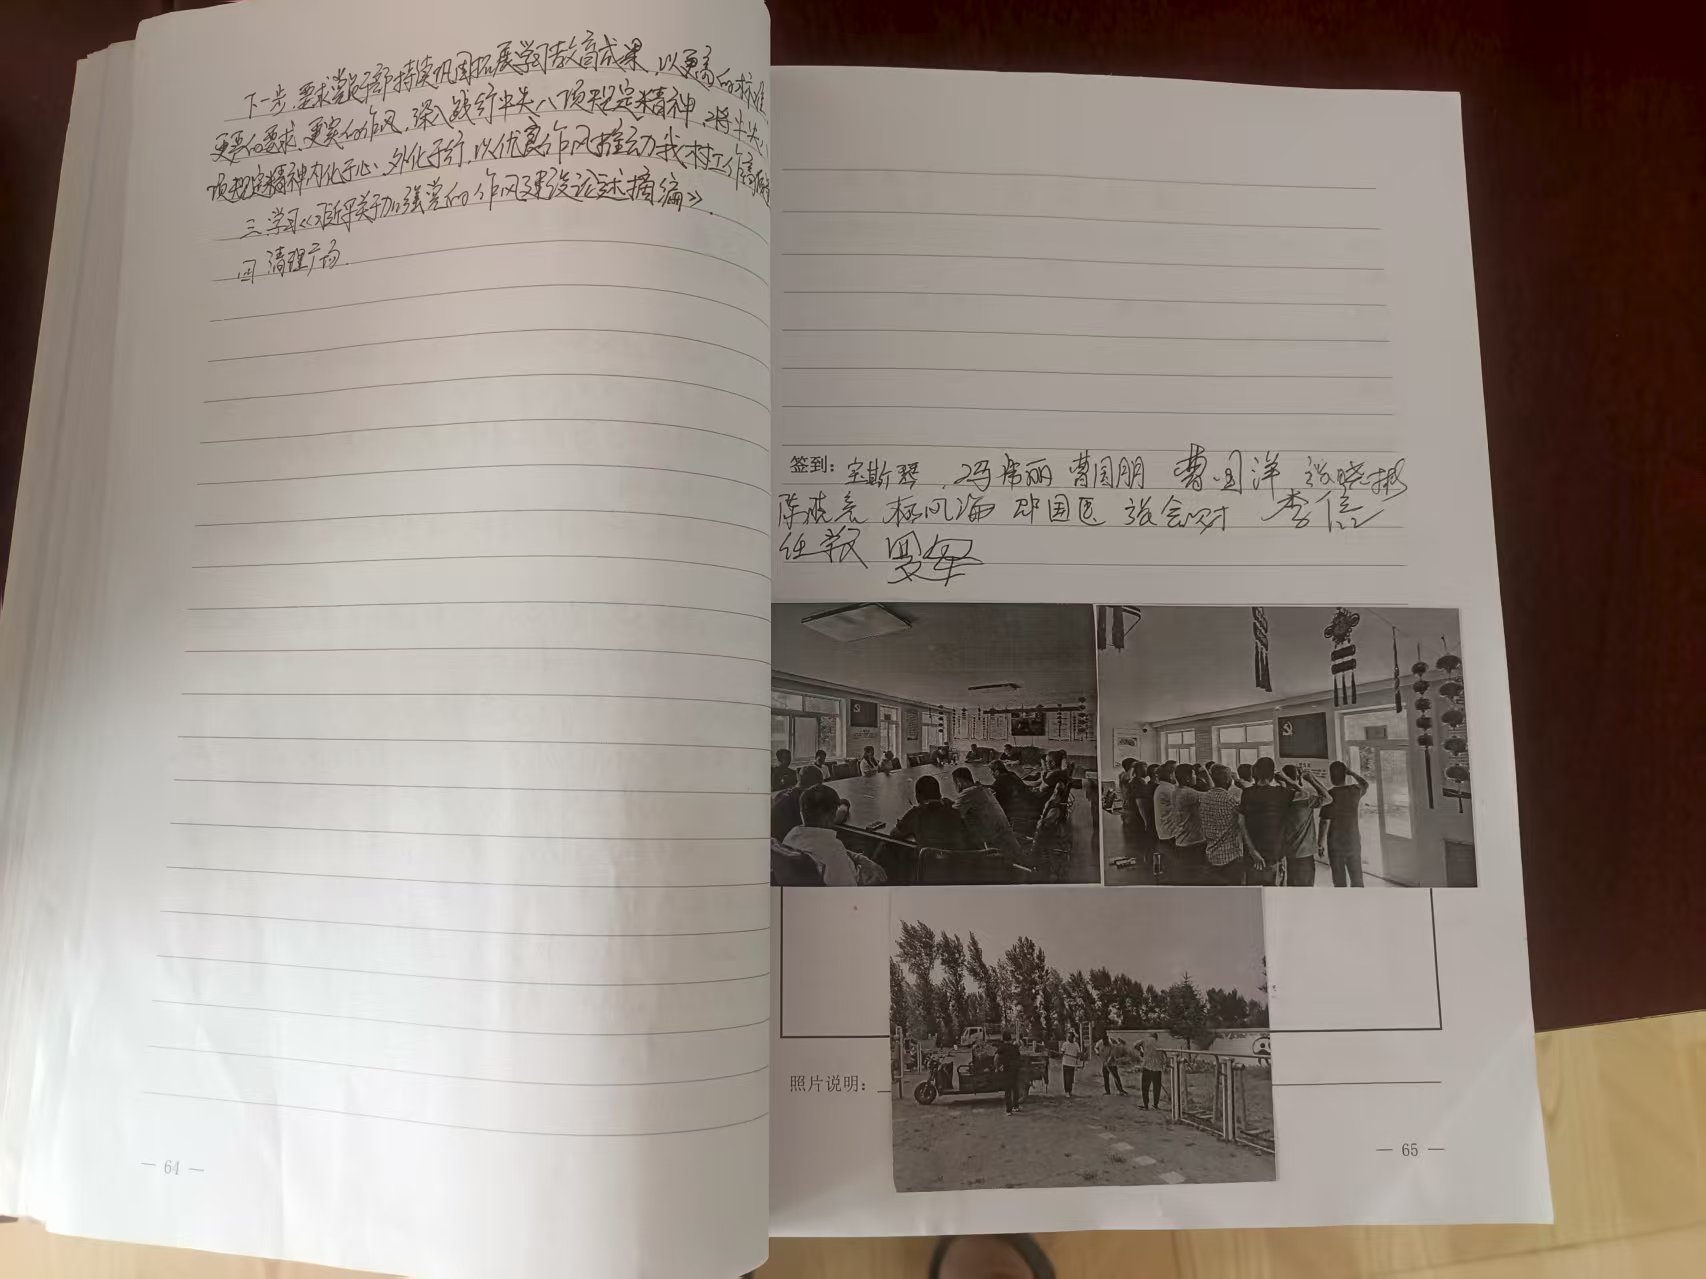 下一步,要求党员干部持续巩固拓展学习教育成果,以更高的标准
更严的要求、更实的作风,深入践行中央八项规定精神,将中央八
项规定精神内化于心、外化于行,以优良作风推动我村工作高质
三、学习《习近平关于加强党的作风建设论述摘编》.
四 清理广场.
— 64 —
签到: 宝斯琴 冯 丽 曹国朋 曹国洋 张晓彬
陈晓亮 杨凤海 邵国臣 张会财 李信
任毅 罗军
照片说明:
— 65 —